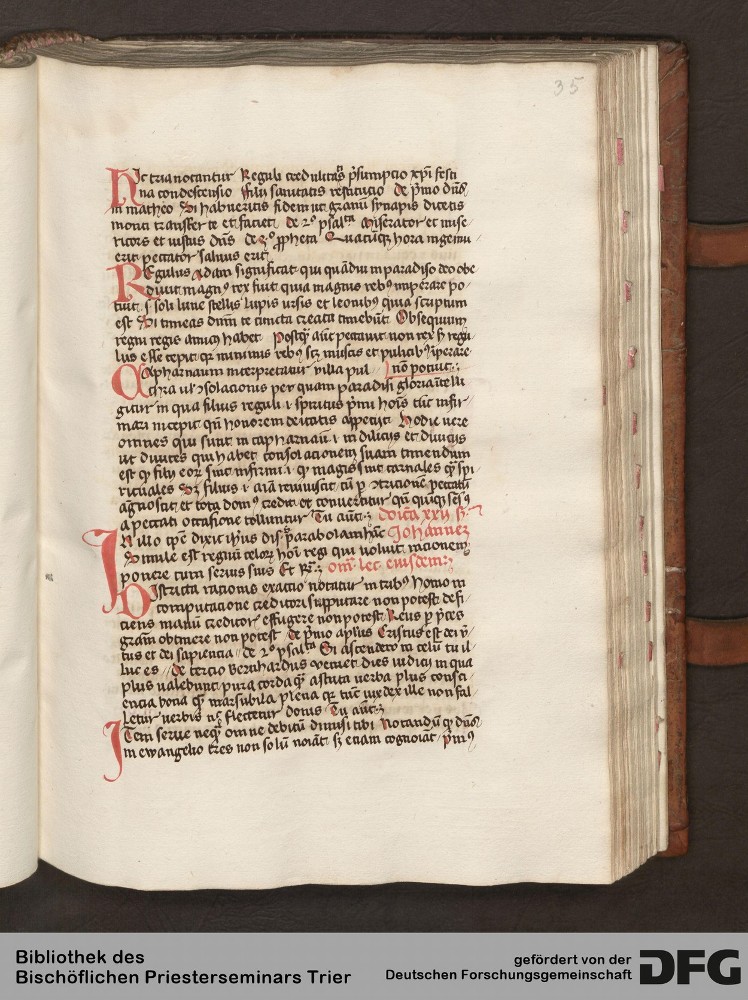 35
Hic tria notantur Reguli credulitas p̄sumpcio xp̄i festi
na condescensio filii sanitatis restitucio de p̄mo dn̄s
in matheo Si habueritis fidem ut granū synapis dicetis
monti transfer te et faciet de 2º psalta Miserator et mise
ricors et iustus dn̄s de 3º ꝓpheta Quacūq hora ingemu
erit peccator saluus erit
Regulus Adam significat qui quādiu in paradiso deo obe
diuit magn9 rex fuit quia magnis reb9 imperare po
tuit s soli lune stellis lupis ursis et leonib9 quia scriptum
est Si timeas dnm te cuncta creata timebūt Obsequium
regni regis amicꝫ habet Postq̄ aūt peccauit non rex sꝫ regu
lus esse cepit qꝫ minimis reb9 scꝫ muscis et pulicib9 īperare
Capharnaum interpretatur villa pul nō potuit
chra ul' ꝯsolacionis per quam paradisi gloria intelli
gitur in qua filius reguli i spiritus p̄mi hoīs tūc infir
mari incepit qn̄ honorem deitatis appetijt Hodie uere
omnes qui sunt in capharnaū i in delicijs et diuicijs
ut diuites qui habēt consolacionem suam timendum
est qꝫ filij eorꝫ sint infirmi i qꝫ magis sint carnales q̄ spi
rituales Sꝫ filius i aīa reuiuiscit cū p ꝯtricione peccatū
agnoscit et tota dom9 credit et conuertitur qn̄ quīqꝫ sēs9
a peccati occasione tolluntur Tu aūt
Doīca xxij s
In illo tp̄e dixit ihus dis ꝑabolam hāc Johannes
Simile est regnū celoꝝ hoī regi qui uoluit racionem
ponere cum seruis suis Et R omī lec eiusdem
Districta racionis exactio notatur in trib9 homo in
computacione creditori supputare non potest defi
ciens manū creditor' effugere non potest Reus ꝑ p̄ces
grām obtinere non potest de p̄mo aplus Cristus est dei v̄
tus et dei sapiencia de 2º psalta Si ascendero in celū tu il
luc es de tercio Bernhardus Veniet dies iudicij in qua
plus ualebunt pura corda q̄ astuta uerba plus consci
encia bona q̄ marsubia plena qꝫ tūc iudex ille non fal
letur uerbis nꝫ flectetur donis Tu aūt
Item Serue neq̄ omne debitū dimisi tibi Notandū qꝫ dn̄s
in ewangelio tres non solū noīat sꝫ eciam cognoīat p̄m9
Bibliothek des
Bischöflichen Priesterseminars Trier
gefördert von der
Deutschen Forschungsgemeinschaft
DFG